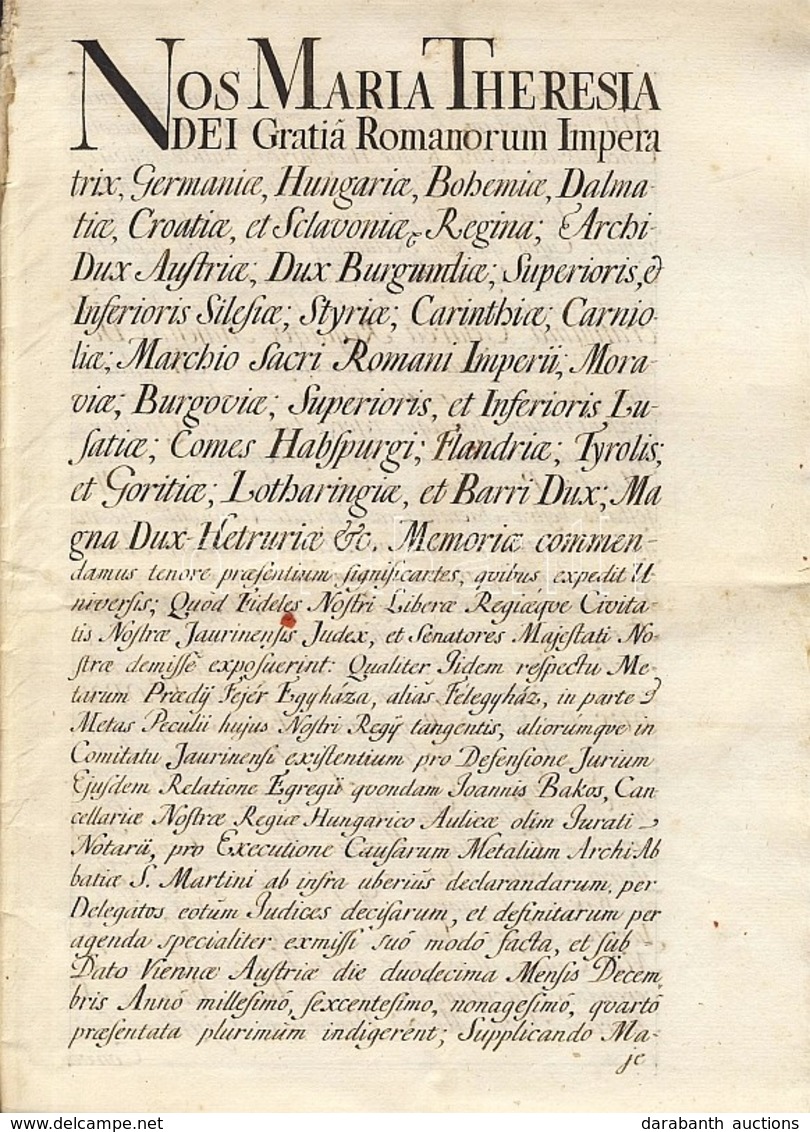 NOS MARIA THERESIA
DEI Gratiâ Romanorum Impera
trix, Germaniæ, Hungariæ, Bohemiæ, Dalma-
tiæ, Croatiæ, et Sclavoniæ &c Regina; Archi-
Dux Auſtriæ; Dux Burgundiæ; Superioris, &
Inferioris Sileſiæ; Styriæ; Carinthiæ; Carnio-
liæ; Marchio Sacri Romani Imperii; Mora-
viæ; Burgoviæ; Superioris, et Inferioris Lu-
ſatiæ; Comes Habſpurgi; Flandriæ; Tyrolis;
et Goritiæ; Lotharingiæ, et Barri Dux; Ma
gna Dux Hetruriæ &c. Memoriæ commen-
damus tenore præſentium ſignificantes, quibus expedit U-
niverſis; Quòd Fideles Noſtri Liberæ Regiæque Civita-
tis Noſtræ Jaurinenſis Judex, et Senatores Majeſtati No-
ſtræ demiſſe expoſuerint: Qualiter Iidem reſpectu Me-
tarum Prædÿ Fejér Egyháza, aliàs Félegyház, in parte
Metas Peculii hujus Noſtri Regÿ tangentis, aliorúmqve in
Comitatu Jaurinenſi exiſtentium pro Defenſione Jurium
Ejuſdem Relatione Egregii qvondam Joannis Bakos, Can
cellariæ Noſtræ Regiæ Hungarico Aulicæ olim Jurati
Notarii, pro Executione Cauſarum Metalium Archi Ab
batiæ S. Martini ab infra uberiùs declarandarum, per
Delegatos eotùm Judices deciſarum, et definitarum per
agenda specialiter exmiſſi suô modô facta, et ſub
Dato Viennæ Auſtriæ die duodecima Menſis Decem
bris Annô milleſimô, ſexcenteſimo, nonageſimô, qvartô
præſentata plurimùm indigerent; Supplicando Ma-
je
darabanth auctions